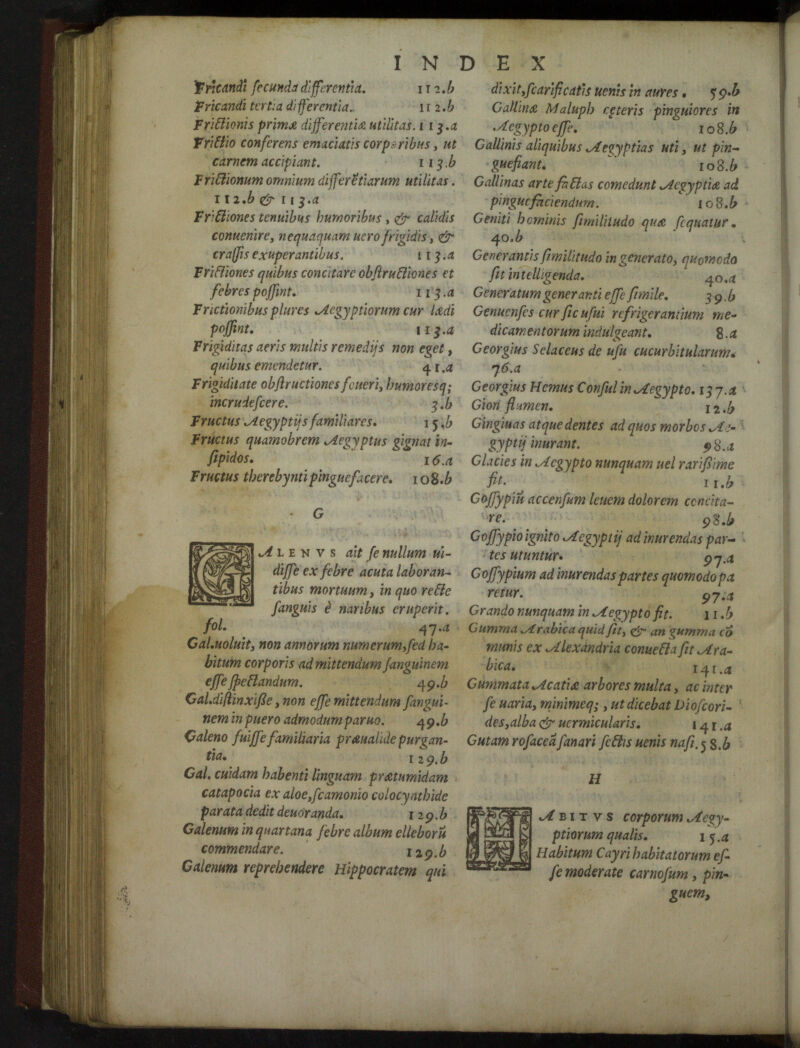 INDEX
Fricandi secunda differentia. 112.b
Fricandi tertia differentia. 112.b
Frictionis primæ differentiæ utilitas. 113.a
Frictio conferens emaciatis corporibus, ut
carnem accipiant. 113.b
Frictionum omnium differẽtiarum utilitas.
112.b & 113.a
Frictiones tenuibus humoribus, & calidis
conuenire, nequaquam uero frigidis, &
crassis exuperantibus. 113.a
Frictiones quibus concitare obstructiones et
febres possint. 113.a
Frictionibus plures Aegyptiorum cur lædi
possint. 113.a
Frigiditas aeris multis remedijs non eget,
quibus emendetur. 41.a
Frigiditate obstructiones foueri, humoresq;
incrudescere. 3.b
Fructus Aegyptijs familiares. 15.b
Fructus quamobrem Aegyptus gignat in-
sipidos. 16.a
Fructus therebynti pinguefacere. 108.b
G
GALENVS ait se nullum ui-
disse ex febre acuta laboran-
tibus mortuum, in quo recte
sanguis è naribus eruperit.
fol. 47.a
Gal.uoluit, non annorum numerum,sed ha-
bitum corporis ad mittendum sanguinem
esse spectandum. 49.b
Gal.distinxisse, non esse mittendum sangui-
nem in puero admodum paruo. 49.b
Galeno fuisse familiaria præualide purgan-
tia. 129.b
Gal. cuidam habenti linguam prætumidam
catapocia ex aloe,scamonio colocynthide
parata dedit deuoranda. 129.b
Galenum in quartana febre album elleborũ
commendare. 129.b
Galenum reprehendere Hippocratem qui
dixit,scarificatis uenis in aures. 59.b
Gallinæ Maluph cęteris pinguiores in
Aegypto esse. 108.b
Gallinis aliquibus Aegyptias uti, ut pin-
guefiant. 108.b
Gallinas arte factas comedunt Aegyptiæ ad
pinguefaciendum. 108.b
Geniti hominis similitudo quæ sequatur.
40.b
Generantis similitudo in generato, quomodo
sit intelligenda. 40.a
Generatum generanti esse simile. 39.b
Genuenses cur sic usui refrigerantium me-
dicamentorum indulgeant. 8.a
Georgius Selaceus de usu cucurbitularum.
76.a
Georgius Hemus Consul in Aegypto. 137.a
Gion flumen. 12.b
Gingiuas atque dentes ad quos morbos Ae-
gyptij inurant. 98.a
Glacies in Aegypto nunquam uel rarissime
fit. 11.b
Gossypiũ accensum leuem dolorem concita-
re. 98.b
Gossypio ignito Aegyptij ad inurendas par-
tes utuntur. 97.a
Gossypium ad inurendas partes quomodo pa
retur. 97.a
Grando nunquam in Aegypto fit. 11.b
Gumma Arabica quid sit, & an gumma cõ
munis ex Alexandria conuecta sit Ara-
bica. 141.a
Gummata Acatiæ arbores multa, ac inter
se uaria, minimeq; , ut dicebat Dioscori-
des,alba & uermicularis. 141.a
Gutam rosaceã sanari sectis uenis nasi. 58.b
H
HABITVS corporum Aegy-
ptiorum qualis. 15.a
Habitum Cayri habitatorum es-
se moderate carnosum, pin-
guem,